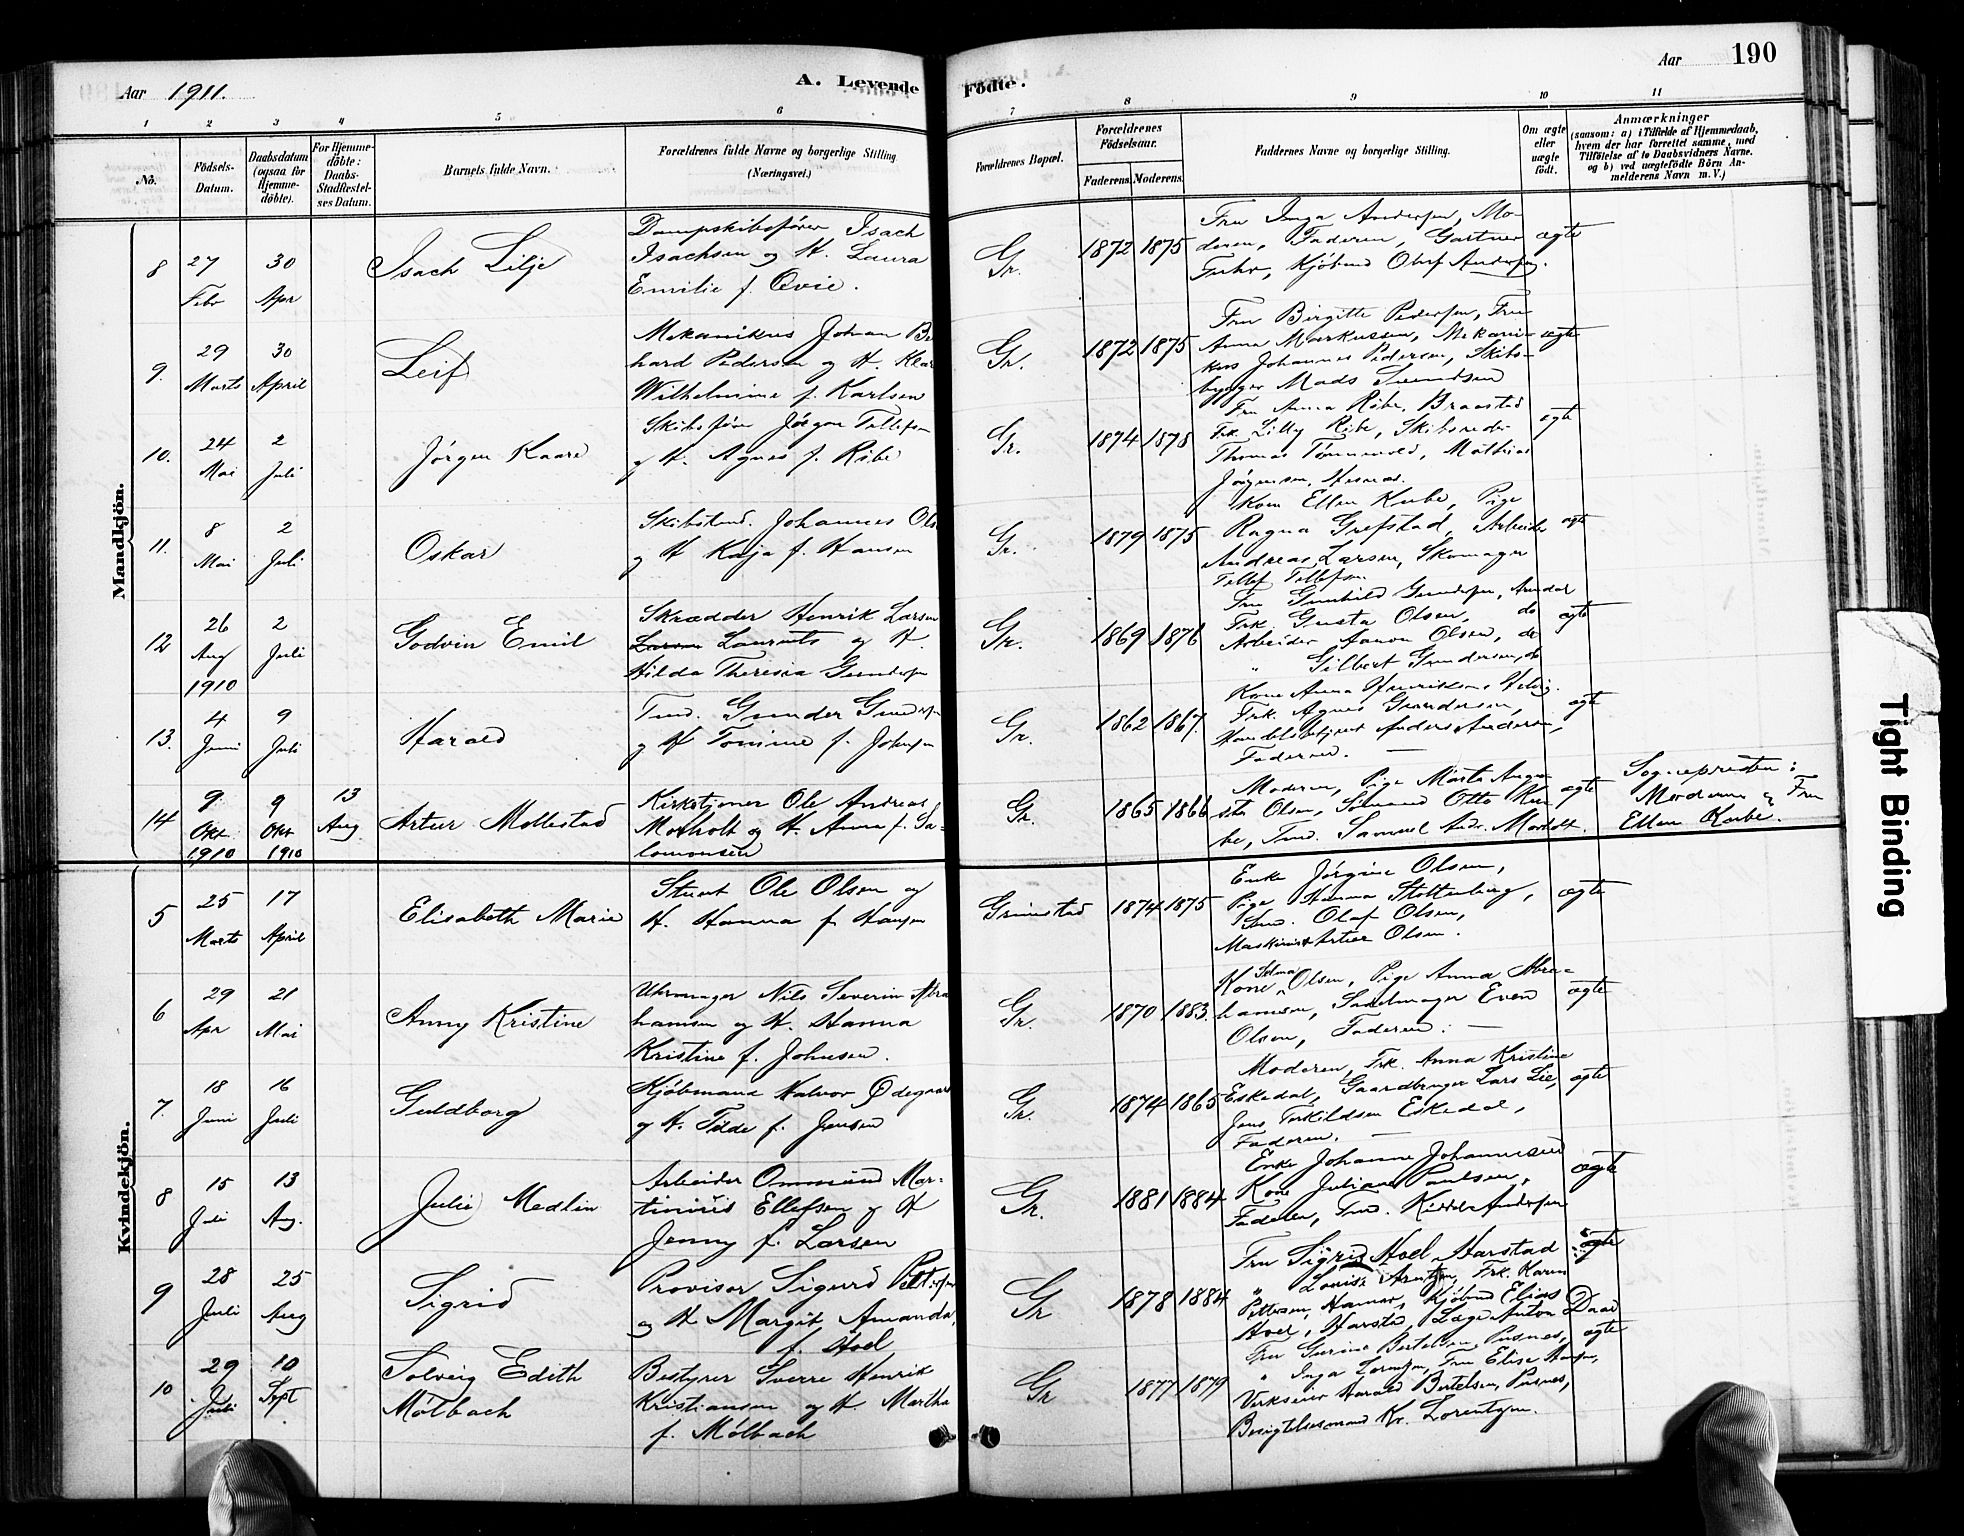 Aar 1911.
A. Levende Födte.
Aar 190
1 2 3 4 5 6 7 8 9 10 11
No.
Födsels-Datum.
Daabsdatum (ogsaa for Hjemmedöbte).
For Hjemmedöbte: Daabs-Stadfæstelses Datum.
Barnets fulde Navn.
Forældrenes fulde Navne og borgerlige Stilling. (Næringsvei.)
Forældrenes Bopæl.
Forældrenes Födselsaar.
Faderens. Moderens.
Faddernes Navne og borgerlige Stilling.
Om ægte eller uægte födt.
Anmærkninger
(saasom: a) i Tilfælde af Hjemmedaab, hvem der har forrettet samme, med Tilföielse af to Daabsvidners Navne. og b) ved uægtefödte Börn Anmelderens Navn m. V.)
Mandkjön.
8 27 Febr 30 Apr Isach Lilje
Dampskibsfører Isach
Isachsen og H. Laura
Emilie f. Evie.
Gr. 1872 1875
Fru Inga Andersen, Mo-
deren, Faderen, Gartner
Fuhr, Kjøbmd Oluf Andersen.
ægte
9. 29 Marts 30 April Leif
Mekanikus Johan
hard Pedersen og H. Klar
Wilhelmine f. Karlsen
Gr. 1872 1875
Fru Birgitte Pedersen, Fru
Anna Markussen, Mekani-
kus Johannes Pedersen, Skibs-
bygger Mads Svendsen
ægte
10. 24 Mai 2 Juli Jørgen Kaare
Skibsfører Jørgen Tellefsen
og H. Agnes f. Ribe
Gr. 1874 1878
Fru Anna Ribe, Braastad
Frk. Lilly Ribe, Skibsreder
Thomas Tønnevold, Mathias
Jørgensen, Hesnæs.
ægte
11. 8 Mai 2 Juli Oskar
Skibstmd. Johannes Ols
og H Kaja f. Hansen
Gr. 1879 1875
Kone Ellen Kube, Pige
Ragna Grefstad, Arbeider
Andreas Larsen, Skomager
Tellef Tellefsen
ægte
12 26 Aug 1910 2 Juli Godvin Emil
Skrædder Henrik Larsen
Larsen Laurents og H.
Hilda Theresia Gundersen
Gr. 1869 1876
Fru Gunhild Gundersen, Arendal
Frk. Gusta Olsen, do
Arbeider Aanon Olsen, do
" Gilbert Gundersen, do
ægte
13. 4 Juni 9 Juli Harald
Tmd. Gunder Gundersen
og H Tomine f. Johnsen
Gr. 1862 1867.
Kone Anna Henriksen
Frk. Agnes Gundersen,
Handelsbetjent Anders Andersen,
Faderen. —
ægte
14 9 Okt 1910 9 Okt 1910 13 Aug Artur Mollestad
Kirketjener Ole Andreas
Motholt og H. Anna f. Sa-
lomonsen
Gr. 1865 1866
Moderen, Pige Marta Augu-
sta Olsen, Sømand Otto Ku-
be, Tmd. Samuel Andr. Mortolt.
ægte
Sognepresten:
Moderen og Fru
Ellen Kube.
Kvindekjön.
5 25 Marts 17 April Elisabeth Marie
Stuert Ole Olsen og
H. Hanna f. Hansen
Grimstad 1874 1875
Enke Jørgine Olsen,
Pige Hanna Stoltenberg,
Tmd. Olaf Olsen,
Maskinist Artur Olsen.
ægte
6 29 Apr 21 Mai Anny Kristine
Uhrmager Nils Severin Abra
hamsen og H. Hanna
Kristine f. Johnsen.
Gr. 1870 1883.
Kone Selma Olsen, Pige Anna Abra-
hamsen, Sadelmager Even
Olsen, Faderen. —
ægte
7. 18 Juni 16 Juli Guldborg
Kjøbmand Halvor Ødegaar
og H. Tilde f. Jensen
Gr. 1874 1865
Moderen, Frk. Anna Kristine
Eskedal, Gaardbruger Lars Lie,
Jens Torkildsen Eskedal,
Faderen. —
ægte
8 15 Juli 13 Aug. Julie Medlin
Arbeider Ommund Mar-
tinius Ellefsen og H
Jenny f. Larsen
Gr. 1881 1884
Enke Johanne Johannessen
Kone Juliane Paulsen,
Faderen, Tmd. Andersen
ægte
9 28 Juli 25 Aug Sigrid
Provisor Sigurd Pettersen
og H Margit Amanda,
f. Hoel
Gr 1878 1884
Fru Sigrid Hoel, Harstad
" Louise Arntzen, Frk. Karen
Pettersen, Hamar, Kjøbmd Elias
Hoel, Harstad, Læge Anton Daae
ægte
10 29 Juli 10 Sept Solveig Edith
Mølbach
Bestyrer Sverre Henrik
Kristiansen og H. Martha
f. Mølbach
Gr 1877 1879
Fru Gurine Bertelsen, Pusnes,
" Inga Lorentzen, Fru Elise Hansen,
Verkseier Harald Bertelsen, Pusnes,
Besigtelsesmand Kr. Lorentzen.
ægte
Tight Binding